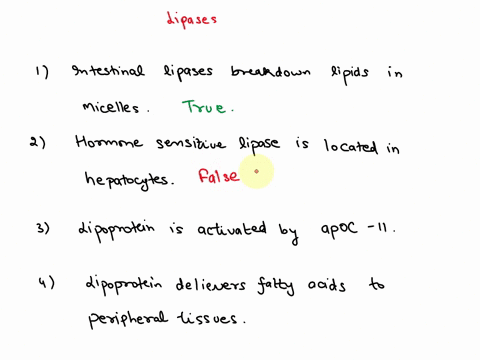 Lipases
1) Intestinal lipases breakdown lipids in
micelles. True.
2) Hormone sensitive lipase is located in
hepatocytes. False
3) Lipoprotein is activated by apoC-11.
4) Lipoprotein delievers fatty acids to
peripheral tissues.